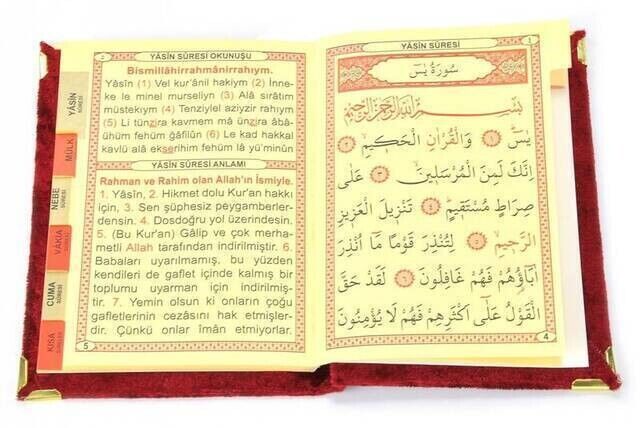 YÂSİN SÛRESİ OKUNUŞU
Bismillâhirrahmânirrahıym.
Yâsîn (1) Vel kur'ânil hakiym (2) İnne-
ke le minel murseliyn (3) Alâ sırâtim
müstekıym (4) Tenziylel aziyzir rahıym
(5) Li tünzira kavmem mâ ünzira âbâ-
ühüm fehüm ğâfilûn (6) Le kad hakkal
kavlü alâ ekserihim fehüm lâ yü'minûn
YÂSİN SÛRESİ ANLAMI
Rahman ve Rahim olan Allah'ın İsmiyle.
1. Yâsîn, 2. Hikmet dolu Kur'an hakkı
için, 3. Sen şüphesiz peygamberler-
densin. 4. Dosdoğru yol üzerindesin.
5. (Bu Kur'an) Gâlip ve çok merha-
metli Allah tarafından indirilmiştir. 6.
Babaları uyarılmamış, bu yüzden
kendileri de gaflet içinde kalmış bir
toplumu uyarman için indirilmiş-
tir. 7. Yemin olsun ki onların çoğu
gafletlerinin cezasını hak etmişler-
dir. Çünkü onlar îmân etmiyorlar.
5
YÂSİN SÛRESİ
MÜLK
NEBE SÛRESİ
VÂKIA
CUMA SÛRESİ
KISA
YÂSİN SÛRESİ
1
سُورَةُ يٰسٓ
بِسْمِ اللّٰهِ الرَّحْمٰنِ الرَّحِيمِ
يٰسٓ ﴿١﴾ وَالْقُرْاٰنِ الْحَكِيمِ ﴿٢﴾
اِنَّكَ لَمِنَ الْمُرْسَلِينَ ﴿٣﴾ عَلٰى
صِرَاطٍ مُسْتَقِيمٍ ﴿٤﴾ تَنْزِيلَ الْعَزِيزِ
الرَّحِيمِ ﴿٥﴾ لِتُنْذِرَ قَوْمًا مَٓا اُنْذِرَ
اٰبَٓاؤُهُمْ فَهُمْ غَافِلُونَ ﴿٦﴾ لَقَدْ حَقَّ
الْقَوْلُ عَلٰٓى اَكْثَرِهِمْ فَهُمْ لَا يُؤْمِنُونَ
4